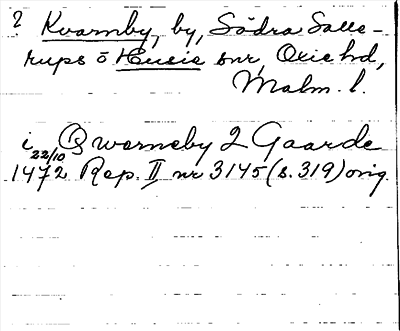 ? Kvarnby, by, Södra Salle-
rups o Husie snr, Oxie hd,
Malm. l.
i Qwarneby 2 Gaarde
22/10
1472 Rep. II nr 3145 (s. 319) orig.